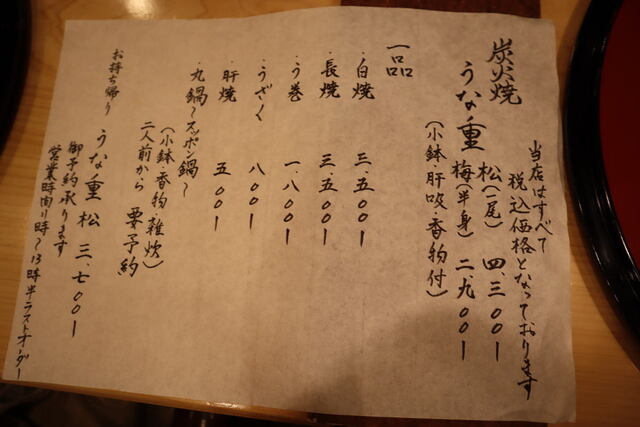 当店はすべて
税込価格となっております
炭火焼
うな重 松(一尾) 四、三〇〇ー
梅(半身) 二、九〇〇ー
(小鉢・肝吸・香物付)
一品
・白焼 三、五〇〇ー
・長焼 三、五〇〇ー
・う巻 一、八〇〇ー
・うざく 八〇〇ー
・肝焼 五〇〇ー
・丸鍋〜スッポン鍋〜
(小鉢・香物・雑炊)
二人前から 要予約
お持ち帰り
うな重 松 三、七〇〇ー
御予約承ります
営業時間11時〜13時半ラストオーダー